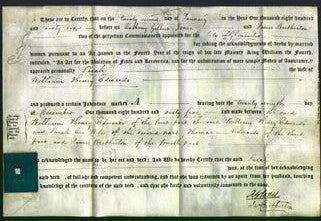 These are to Certify, that on the twenty ninth day of January in the Year One thousand eight hundred
and sixty six before us and James Brotherton
two of the perpetual Commissioners appointed for the City of Gloucester
for taking the acknowledgments of deeds by married
women pursuant to an Act passed in the Fourth Year of the reign of his late Majesty King William the Fourth
intituled, "An Act for the Abolition of Fines and Recoveries, and for the substitution of more simple Modes of Assurance."
appeared personally Sarah
William Henry Edwards
and produced a certain Indenture marked A bearing date the twenty seventh day
of December One thousand eight hundred and sixty five made between the said
William Henry Edwards of the first part the said William Henry Edwards
and Sarah his Wife of the second part Thomas Edwards of the third
part and James Brotherton of the fourth part
and acknowledged the same to be her act and deed: And We do hereby Certify that the said
was, at the time of her acknowledging
the said deed, of full age and competent understanding, and that she was examined by us apart from her husband, touching
her knowledge of the contents of the said deed, and that she freely and voluntarily consented to the same.
Jas Brotherton